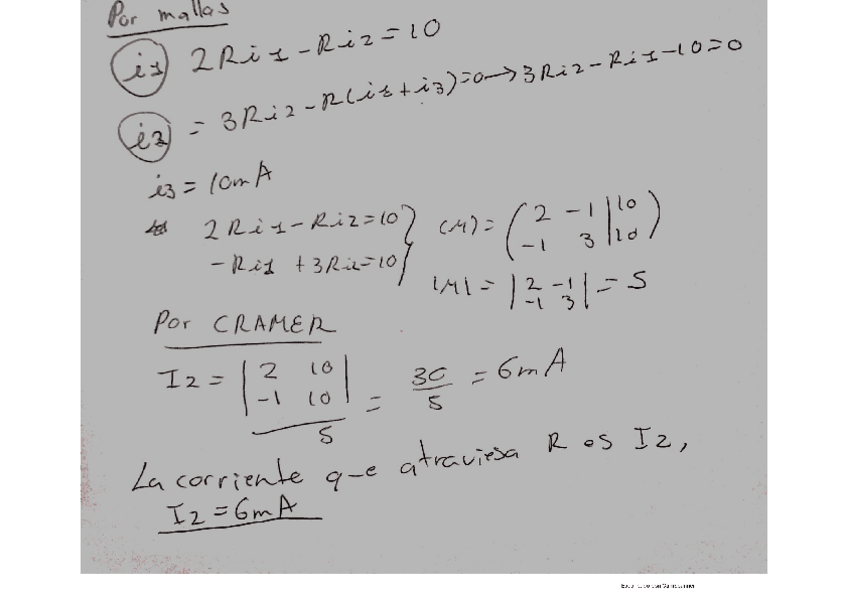 Por mallas
i1 2Ri1 - Ri2 = 10
i2 = 3Ri2 - R(i1 + i3) = 0 → 3Ri2 - Ri1 - 10 = 0
i3 = 10mA
2Ri1 - Ri2 = 10 } (M) = ( 2 -1 | 10
-1 3 | 10 )
-Ri1 + 3Ri2 = 10 } |M| = | 2 -1
-1 3 | = 5
Por CRAMER
I2 = | 2 10
-1 10 | / 5 = 30/5 = 6mA
La corriente que atraviesa R es I2,
I2 = 6mA